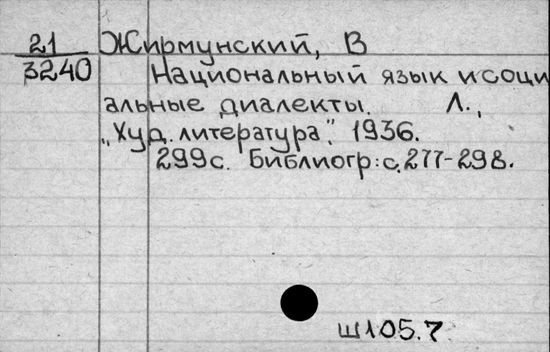 21 Жирмунский, В
3240 Национальный язык и соци
альные диалекты. Л.,
„Худ. литература". 1936.
299с. Библиогр: с. 277-298.
Ш105.7